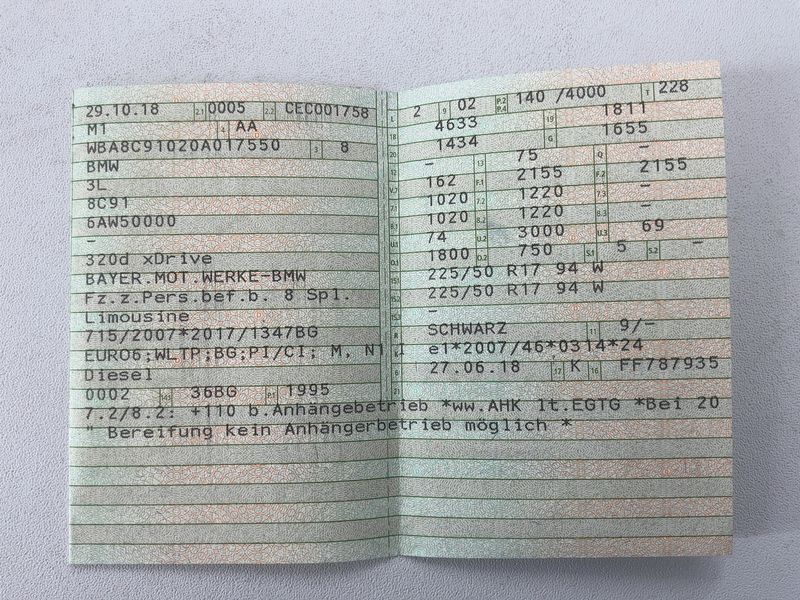 29.10.18 2.1 0005 2.2 CEC001758
M1 4 AA
WBA8C91020A017550 3 8
BMW
3L
8C91
6AW50000
–
320d xDrive
BAYER.MOT.WERKE-BMW
Fz.z.Pers.bef.b. 8 Spl.
Limousine
715/2007*2017/1347BG
EURO6;WLTP;BG;PI/CI; M, N1 I
Diesel
0002 14.1 36BG P.1 1995
L 2 9 02 P.2 P.4 140 /4000 T 228
18 4633 19 1811
20 1434 G 1655
12 – 13 75 Q –
V.7 162 F.1 2155 F.2 2155
7.1 1020 7.2 1220 7.3 –
8.1 1020 8.2 1220 8.3 –
U.1 74 U.2 3000 U.3 69
O.1 1800 O.2 750 S.1 5 S.2 –
15.1 225/50 R17 94 W
15.2 225/50 R17 94 W
15.3 –
R SCHWARZ 11 9/–
K e1*2007/46*0314*24
6 27.06.18 17 K 16 FF787935
21
7.2/8.2: +110 b.Anhängebetrieb *ww.AHK lt.EGTG *Bei 20
" Bereifung kein Anhängerbetrieb möglich *